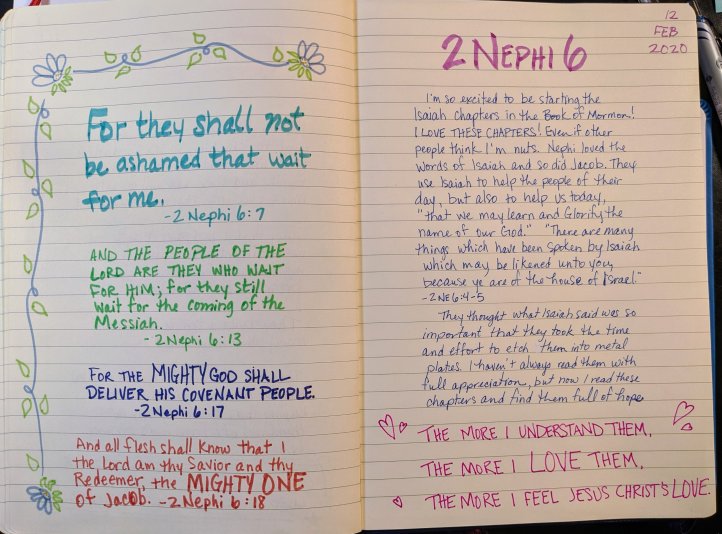 For they shall not
be ashamed that wait
for me.
-2 Nephi 6:7
AND THE PEOPLE OF THE
LORD ARE THEY WHO WAIT
FOR HIM; for they still
wait for the coming of the
Messiah.
- 2 Nephi 6:13
FOR THE MIGHTY GOD SHALL
DELIVER HIS COVENANT PEOPLE.
-2 Nephi 6:17
And all flesh shall know that I
the Lord am thy Savior and thy
Redeemer, the MIGHTY ONE
of Jacob. -2 Nephi 6:18
12
FEB
2020
2 NEPHI 6
I'm so excited to be starting the
Isaiah chapters in the Book of Mormon!
I LOVE THESE CHAPTERS! Even if other
people think I'm nuts. Nephi loved the
words of Isaiah and so did Jacob. They
use Isaiah to help the people of their
day, but also to help us today,
"that we may learn and Glorify the
name of our God." "There are many
things which have been spoken by Isaiah
which may be likened unto you,
because ye are of the house of Israel."
-2NE6:4-5
They thought what Isaiah said was so
important that they took the time
and effort to etch them into metal
plates. I haven't always read them with
full appreciation, but now I read these
chapters and find them full of hope.
THE MORE I UNDERSTAND THEM,
THE MORE I LOVE THEM,
THE MORE I FEEL JESUS CHRIST'S LOVE.